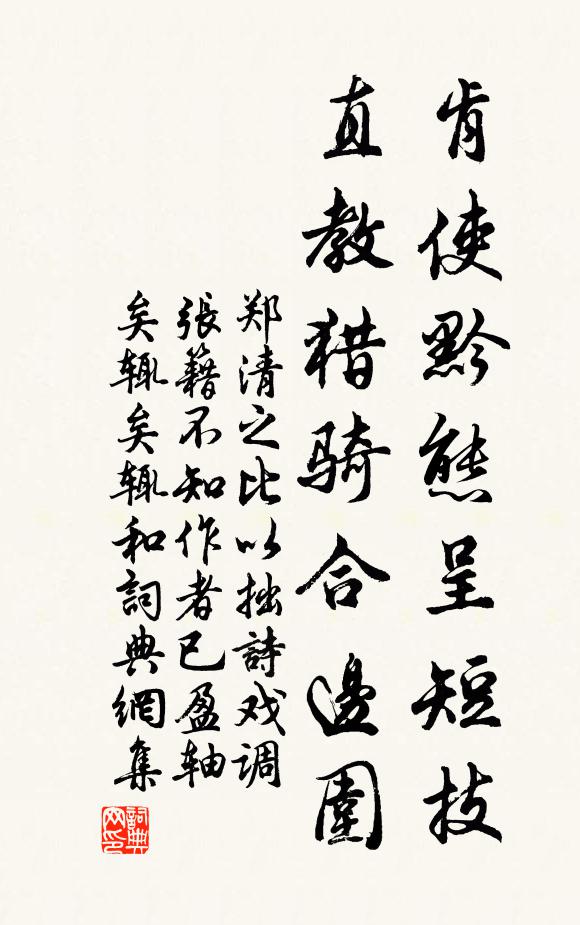 肯使黔熊呈短技
直教猎骑合邊圍
郑清之比以拙詩戏调
張籍不知作者已盈軸
矣辄矣辄和詞典網集
詞典网印